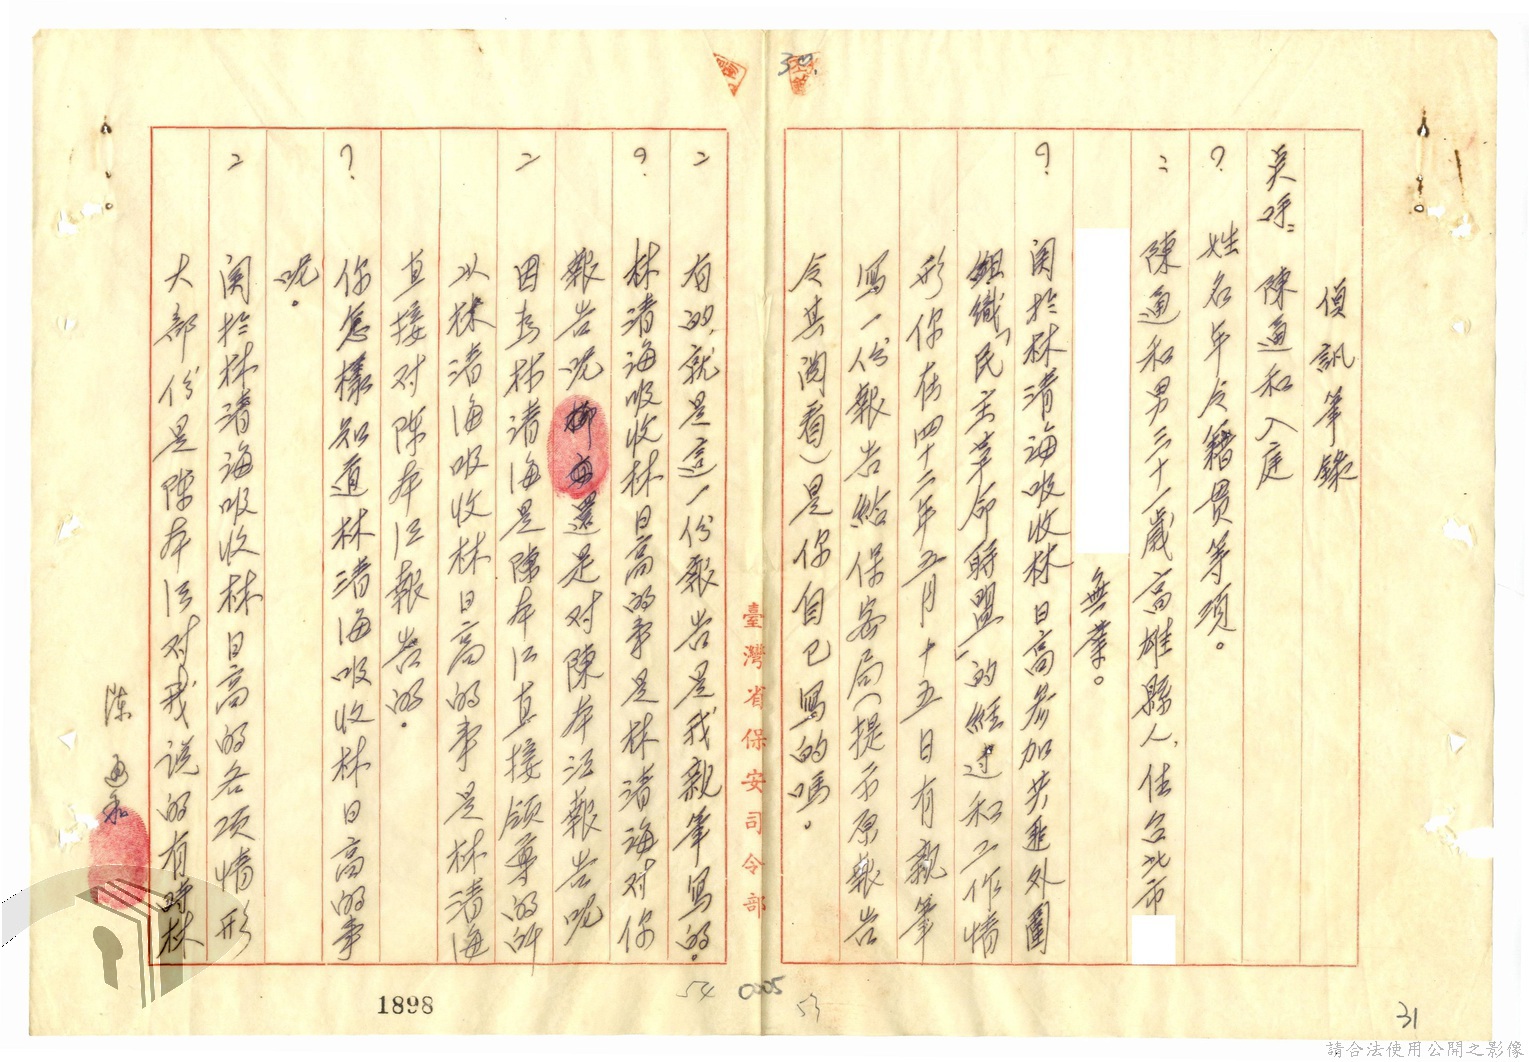 偵訊筆錄
点呼：陳通和入庭
？姓名年令籍貫等項。
：陳通和男三十一歲高雄縣人、住台北市
無業。
？関於林清海吸收林日高参加共匪外圍
組織「民主革命聯盟」的経过和工作情
形你在四十二年五月十五日有親筆
寫一份報告給保安局（提示原報告
令其閱看）是你自己寫的嗎。
：有的，就是這一份報告是我親筆寫的。
？林清海吸收林日高的事是林清海对你
報告呢還是对陳本江報告呢
：因為林清海是陳本江直接領導的所
以林清海吸收林日高的事是林清海
直接对陳本江報告的。
？你怎樣知道林清海吸收林日高的事
呢。
：関於林清海吸收林日高的各項情形
大部份是陳本江对我説的有時林
陳通和
臺灣省保安司令部
1898
54
0005
53
31
請合法使用公開之影像